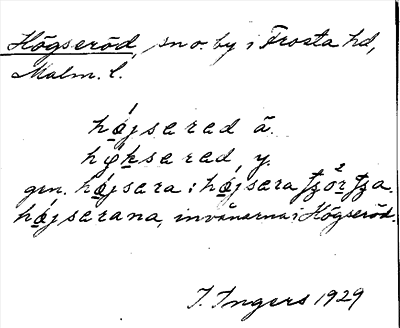 Högseröd, sn o. by i Frosta hd,
Malm. l.
hǿjsarad ä.
høksarad, y.
gm. hǿjsara : hǿjsara
hǿjsarana, invånarna i Högseröd.
I. Ingers 1929